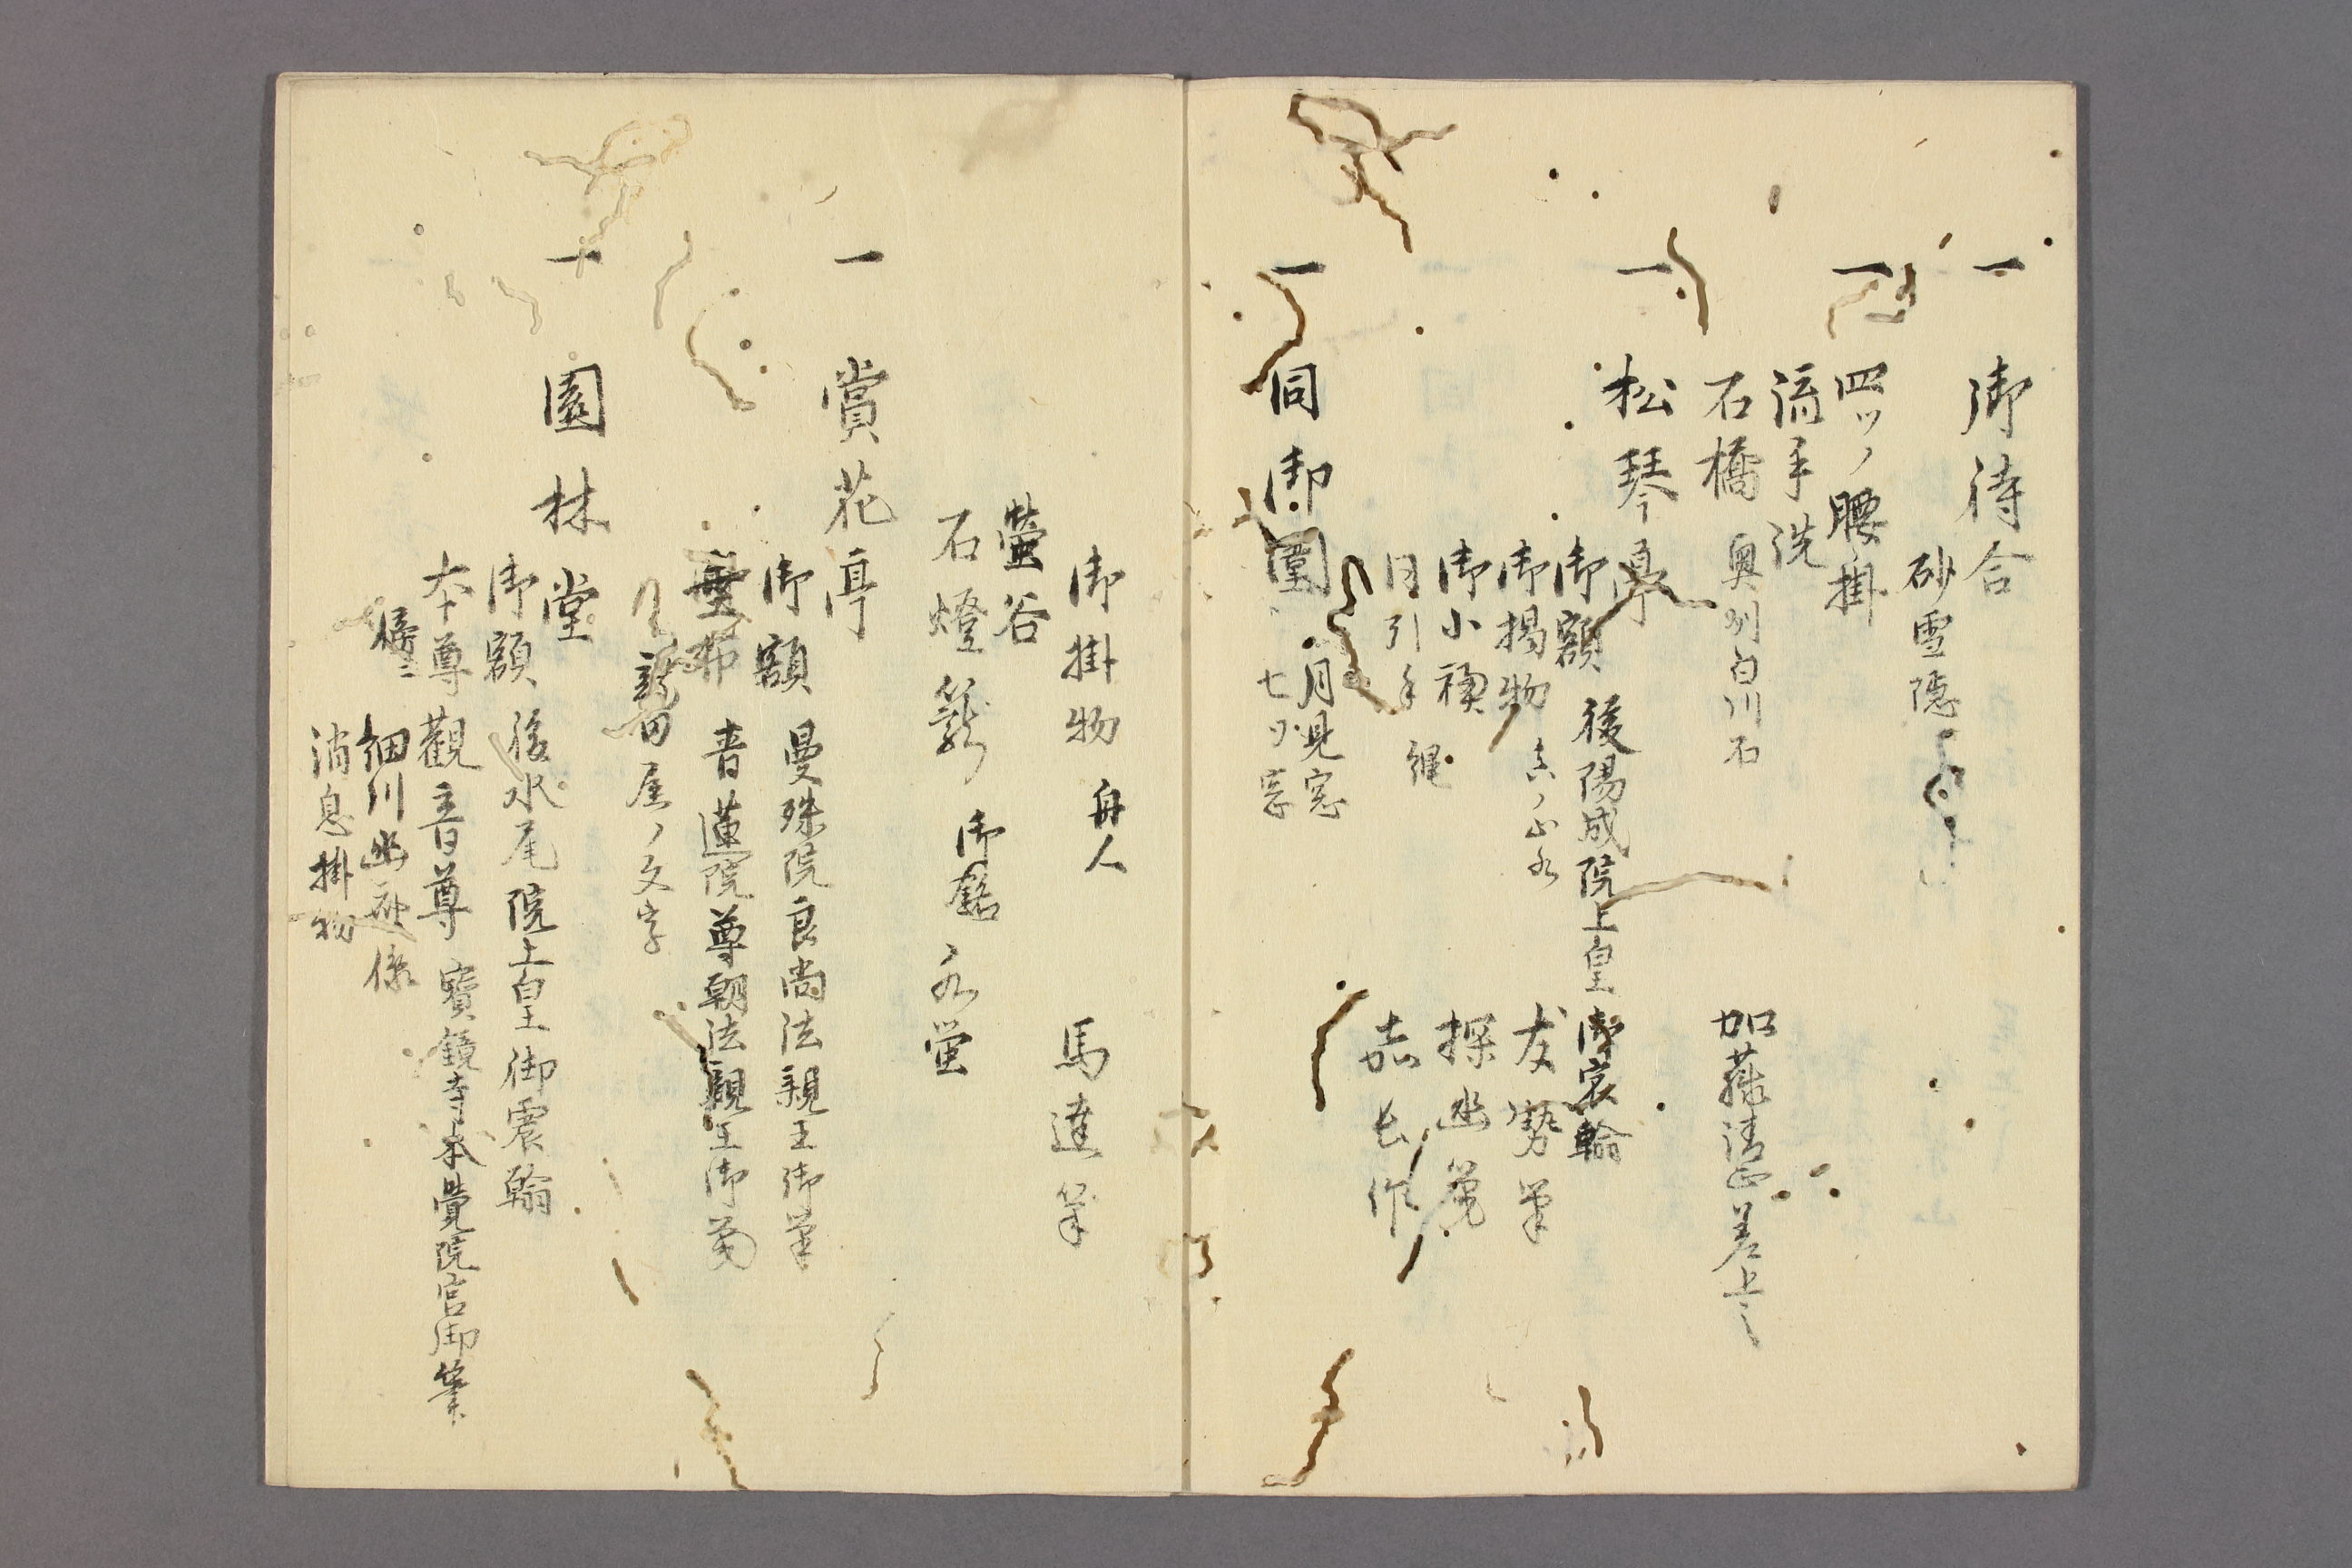 一 御待合
砂雪隠
一 四ツノ腰掛
流手洗
石橋 奥州白川石 加藤清正差上之
一 松琴亭
御額 後陽成院上皇御宸翰
御掲物 真ノ山水 友勢筆
御小襖 探幽筆
同引手 縄 嘉長作
一 同御圍 月見窓
七ツ窓
御掛物 舟人 馬達筆
螢谷
石燈籠 御銘 水螢
一 賞花亭
御額 曼殊院良尚法親王御筆
青蓮院尊朝法親王御筆
屋ノ文字
一 園林堂
御額 後水尾院上皇御震翰
本尊觀音尊 寶鏡寺本覺院宮御筆
細川幽斎像
消息掛物